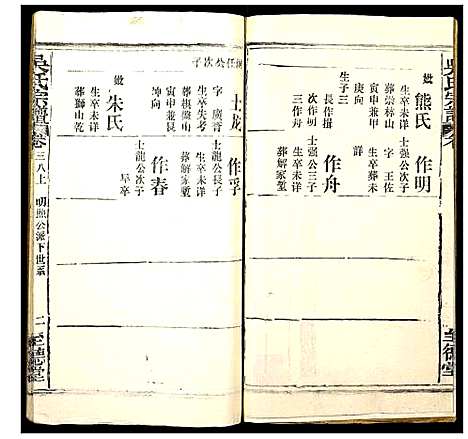 娍熊氏
葬崇梓山
寅申兼甲
庚向
生子三
長作揖
次作明
三作舟
作明
士强公次子
字 王佐
生卒葬未
詳
作舟
士强公三子
生卒未详
葬解家鼗
至德堂
吳氏宗譜
卷三八上 明熙公派下世系
二
至德堂
公次子
士龙
字 廣膏
生卒失考
葬棋盤山
寅申兼艮
坤向
朱氏
生卒未详
葬獅山乾
作孚
士龍公長子
生卒未详
葬解家鼗
作春
士龍公次子
早卒